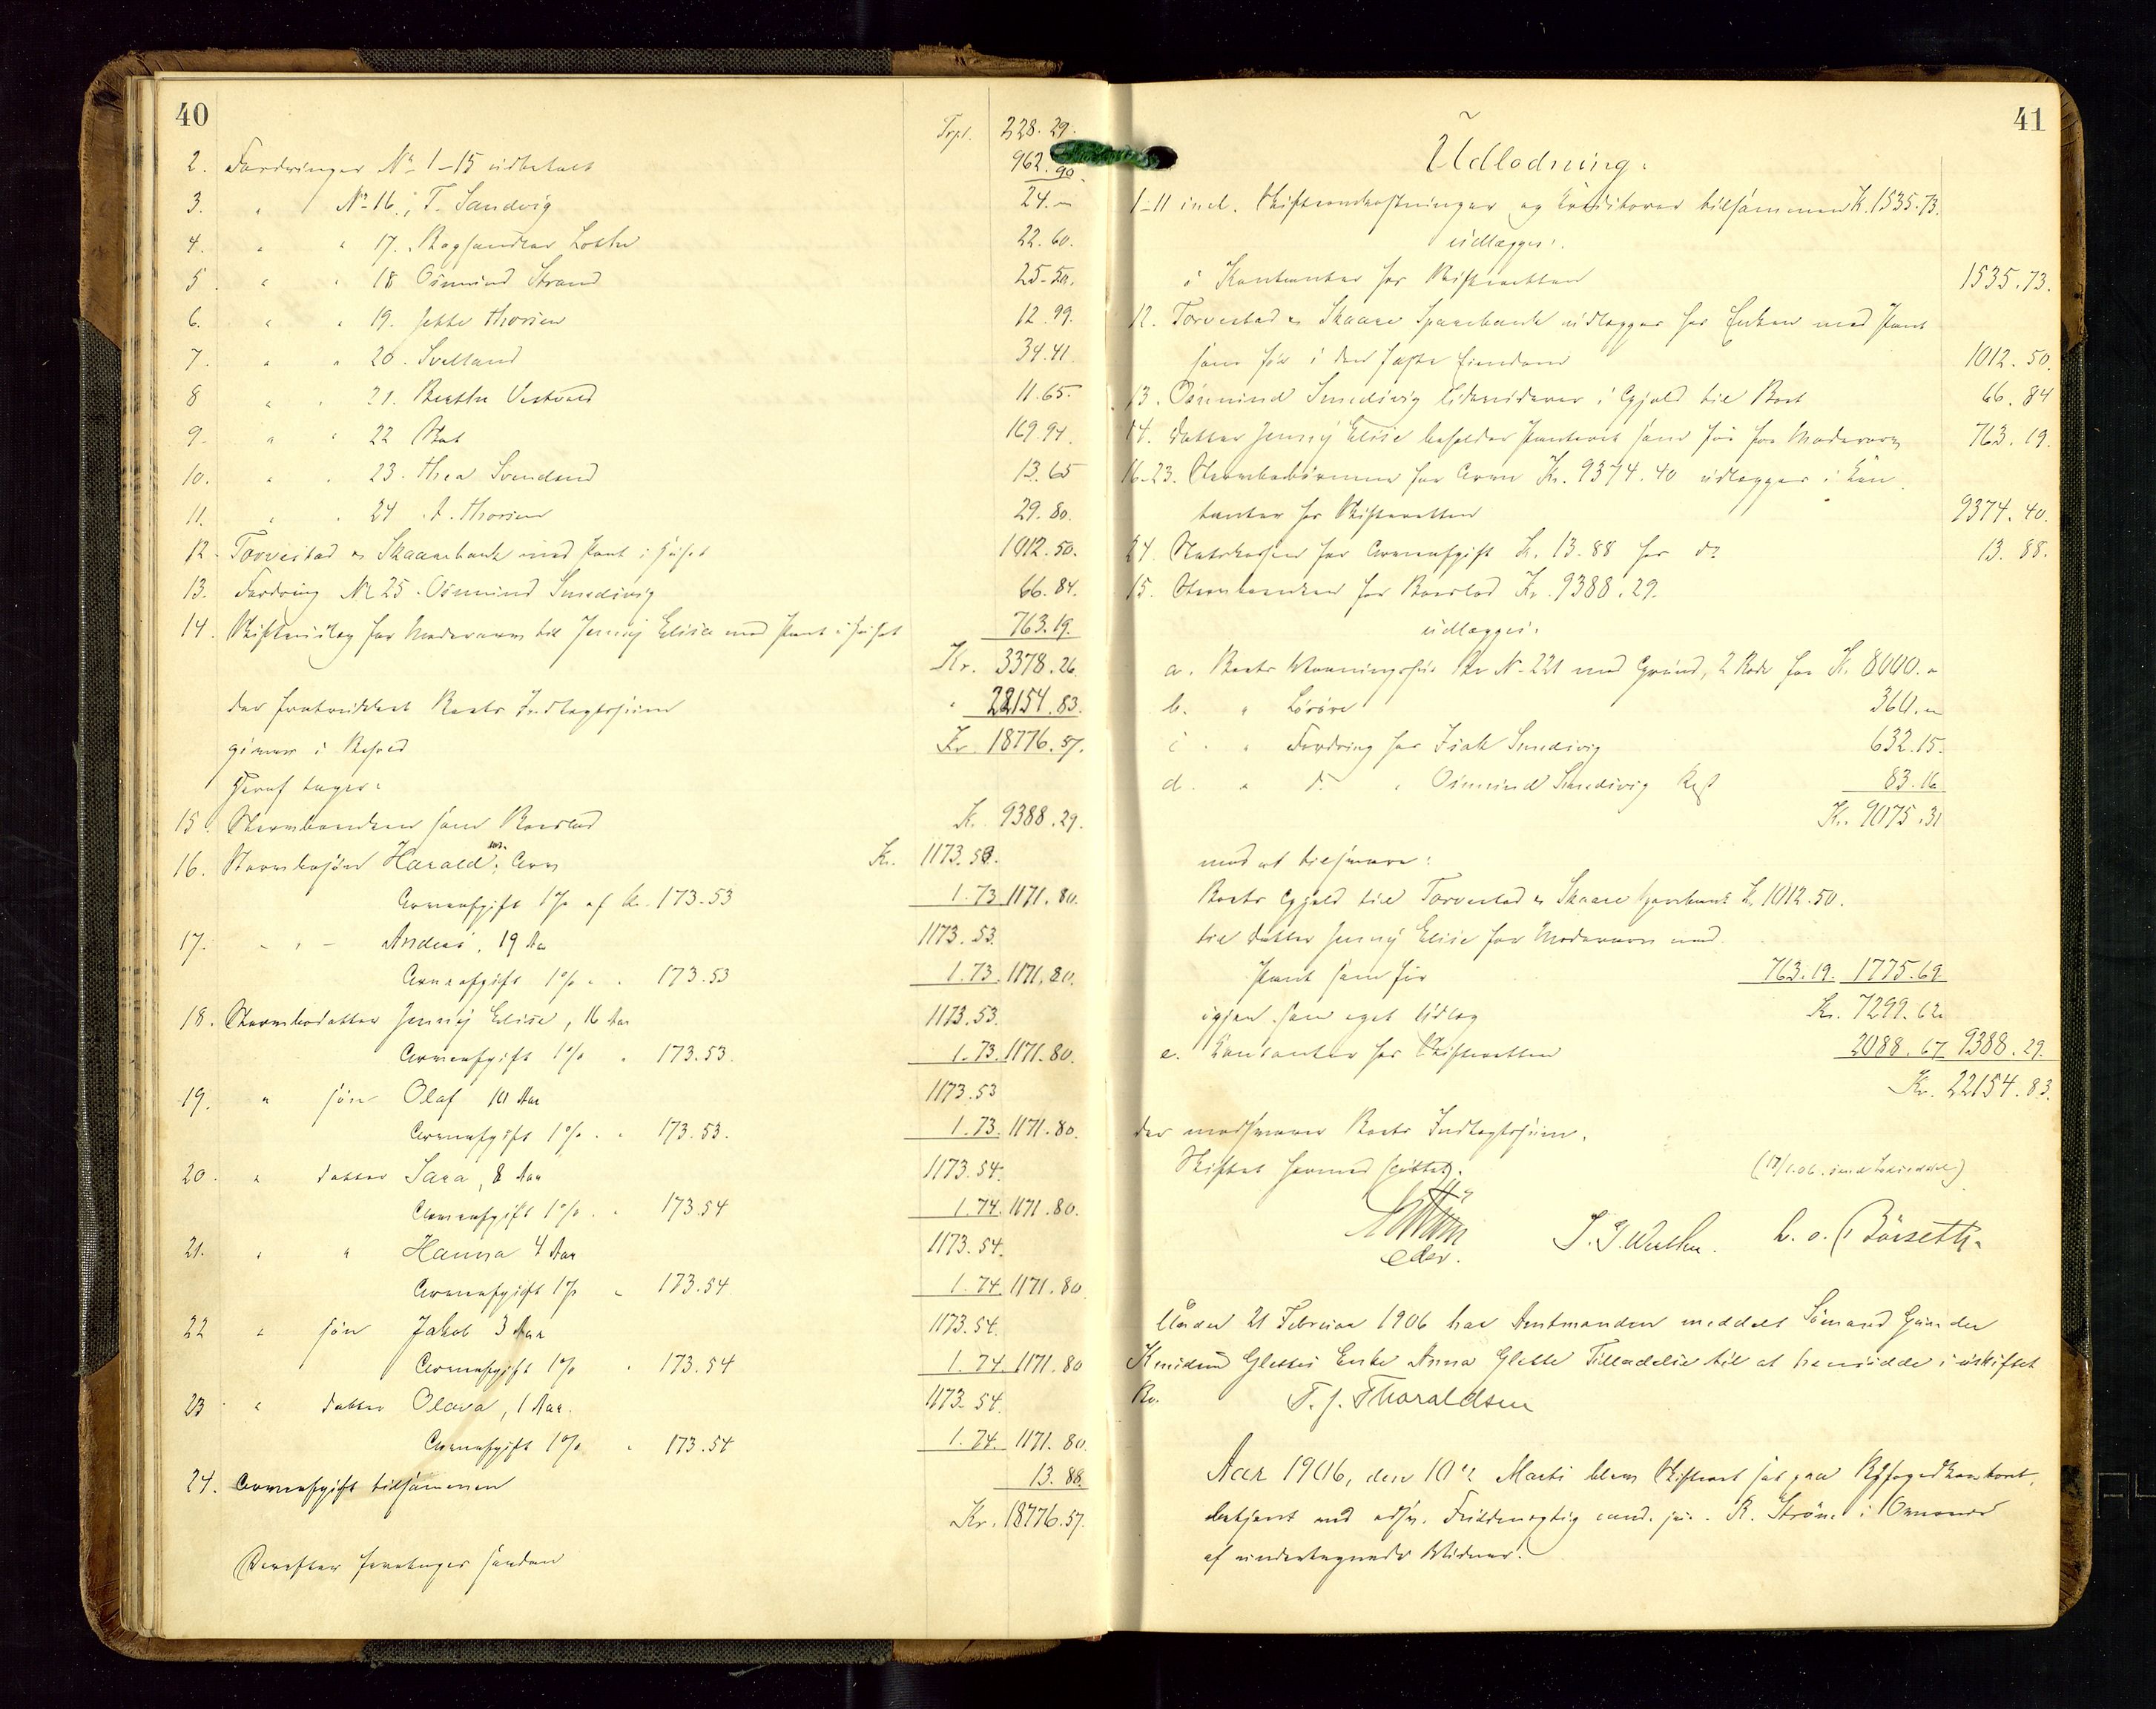 40
Trpt. 228.29.
2. Fordringer No 1-15 udbetalt 962.90
3. " No 16. T. Sandvig 24.-
4. " " 17. Boghandler Lothe 22.60.
5. " " 18 Osmund Strand 25-50.
6. " " 19. Jette Thorsen 12.99.
7. " " 20. Svelland 34.41
8 " " 21. Berthe Vestvold 11.65.
9. " " 22 169.94.
10. " " 23. Thea Svendsen 13.65
11. " " 24 A. Thorsen 29.80.
12. Torvestad & Skaarebank med Pant i Huset 1012.50.
13. Fordring No 25. Osmund Smedsvig 66.84.
14. Skifteudlæg for Modrearv til Jenny Elise med Pant i Huset 763.19.
Kr. 3378.26.
der fratrukket Boets Indtægtssum " 22154.83.
giver i Behold Kr 18776.57.
Heraf tager:
15. Stervboenken som Boeslod K. 9388.29.
16. Stervbosøn Harald, Arv K. 1173.53.
Arveafgift 1% af Kr. 173.53 1.73 1171.80.
17. " " " Andreas, 19 Aar 1173.53.
Arveafgift 1% " " 173.53 1.73. 1171.80.
18. Stervbodatter Jenny Elise, 16 Aar 1173.53.
Arveafgift 1% " 173.53. 1.73. 1171.80.
19. " søn Olaf 10 Aar 1173.53
Arveafgift 1% . " 173.53. 1.73. 1171.80.
20. " datter Sara, 8 Aar 1173.54.
Arveafgift 1% . " 173.54 1.74. 1171.80.
21. " " Hanna 4 Aar 1173.54.
Arveafgift 1% " 173.54 1.74. 1171.80
22 " søn Jakob 3 Aar 1173.54.
Arveafgift 1% " 173.54 1.74. 1171.80
23 " datter Olava, 1 Aar. 1173.54.
Arveafgift 1% " 173.54 1.74. 1171.80.
24. Arveafgift tilsammen 13.88.
Kr. 18776.57.
Derefter foretoges saadan
41
Udlodning:
1-11 incl. Skifteomkostninger og Creditorer tilsammen K. 1535.73.
udlægges:
i Kontanter hos Skifteretten 1535.73.
12. Torvestad & Skaare Sparebank udlægges hos Enken med Pant
som før i den faste Eiendom 1012.50.
13. Osmund Smedsvig likviderer i Gjæld til Boet 66.84
14. Datter Jenny Elise beholder Panteret som før for Modrearv 763.19.
16-23. Stervbobørnene for Arv Kr. 9374.40 udlægges i Kon
tanter hos Skifteretten 9374.40.
24. Statskassen for Arveafgift K. 13.88 hos do 13.88.
15. Stervboenken for Boeslod Kr. 9388.29.
udlægges:
a. Boets Vaaningshus Br No 221 med Grund, 2 Rode for K. 8000.-
b. " Løsøre 360.-
c. " Fordring hos Isak Smedsvig 632.15.
d. " do " Osmund Smedsvig Rest 83.16
Kr. 9075.31
mod at tilsvare:
Boets Gjæld til Torvestad & Skaare Sparebank K. 1012.50.
til datter Jenny Elise for Modrearv med
Pant som før 763.19. 1775.69
igjen som eget Udlæg Kr. 7299.62
e. Kontanter hos Skifteretten 2088.67 9388.29.
Kr. 22154.83.
der modsvarer Boets Indtægtssum.
Skiftet hermed sluttet.
eder. b. o. Børseth.
Under 21 Februar 1906 har Amtmanden meddelt Sømand Gunder
Knudsen Glettes Enke Anna Glette Tilladelse til at hensidde i uskiftet
Bo. T. J. Thoraldsen
Aar 1906, den 10de Marts blev Skifteret sat paa Byfogedkontoret,
betjent ved edsv. Fuldmægtig cand. jur. R. Strøm i Overvær
af undertegnede Vidner.